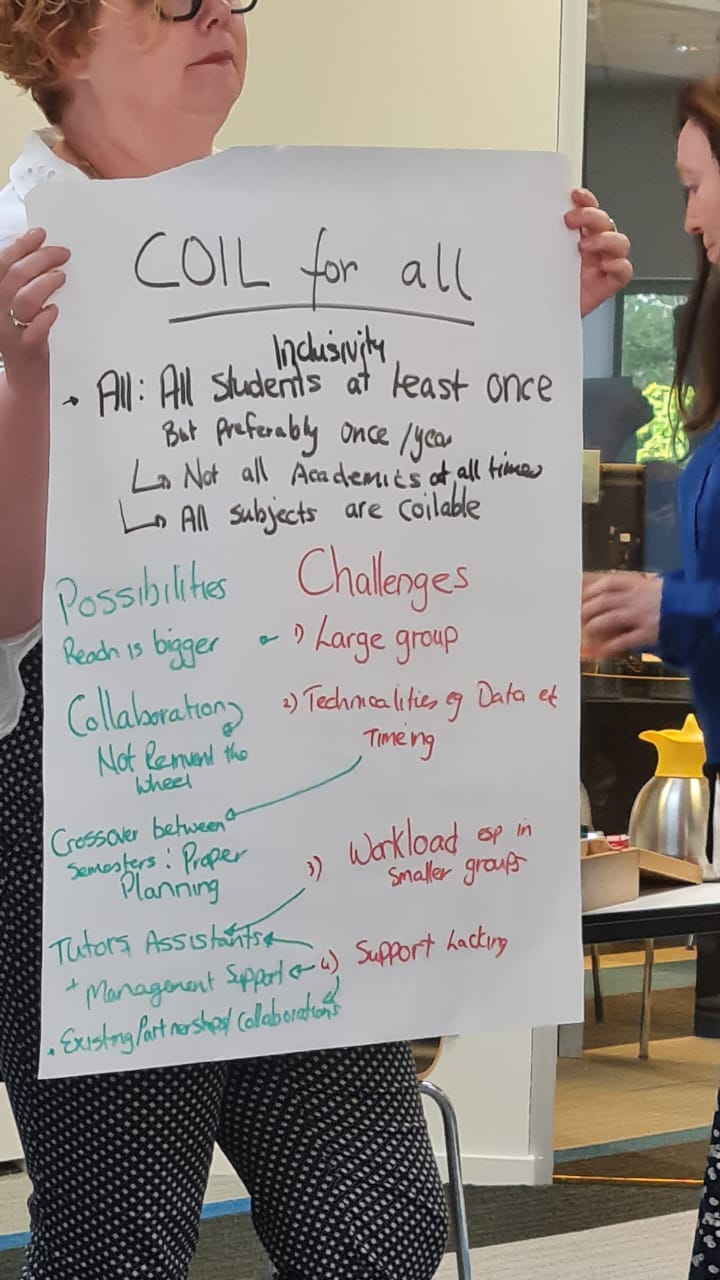 COIL for all
Inclusivity
All: All students at least once
But preferably once /year
Not all Academics at all times
All subjects are Coilable
Possibilities
Reach is bigger
Collaboration
Not Reinvent the
wheel
Crossover between
Semesters: Proper
Planning
Tutors, Assistants
+ Management Support
. Existing Partnerships/Collaborations
Challenges
1) Large group
2) Technicalities eg Data et
Timeing
3) Workload esp in
smaller groups
4) Support Lacking